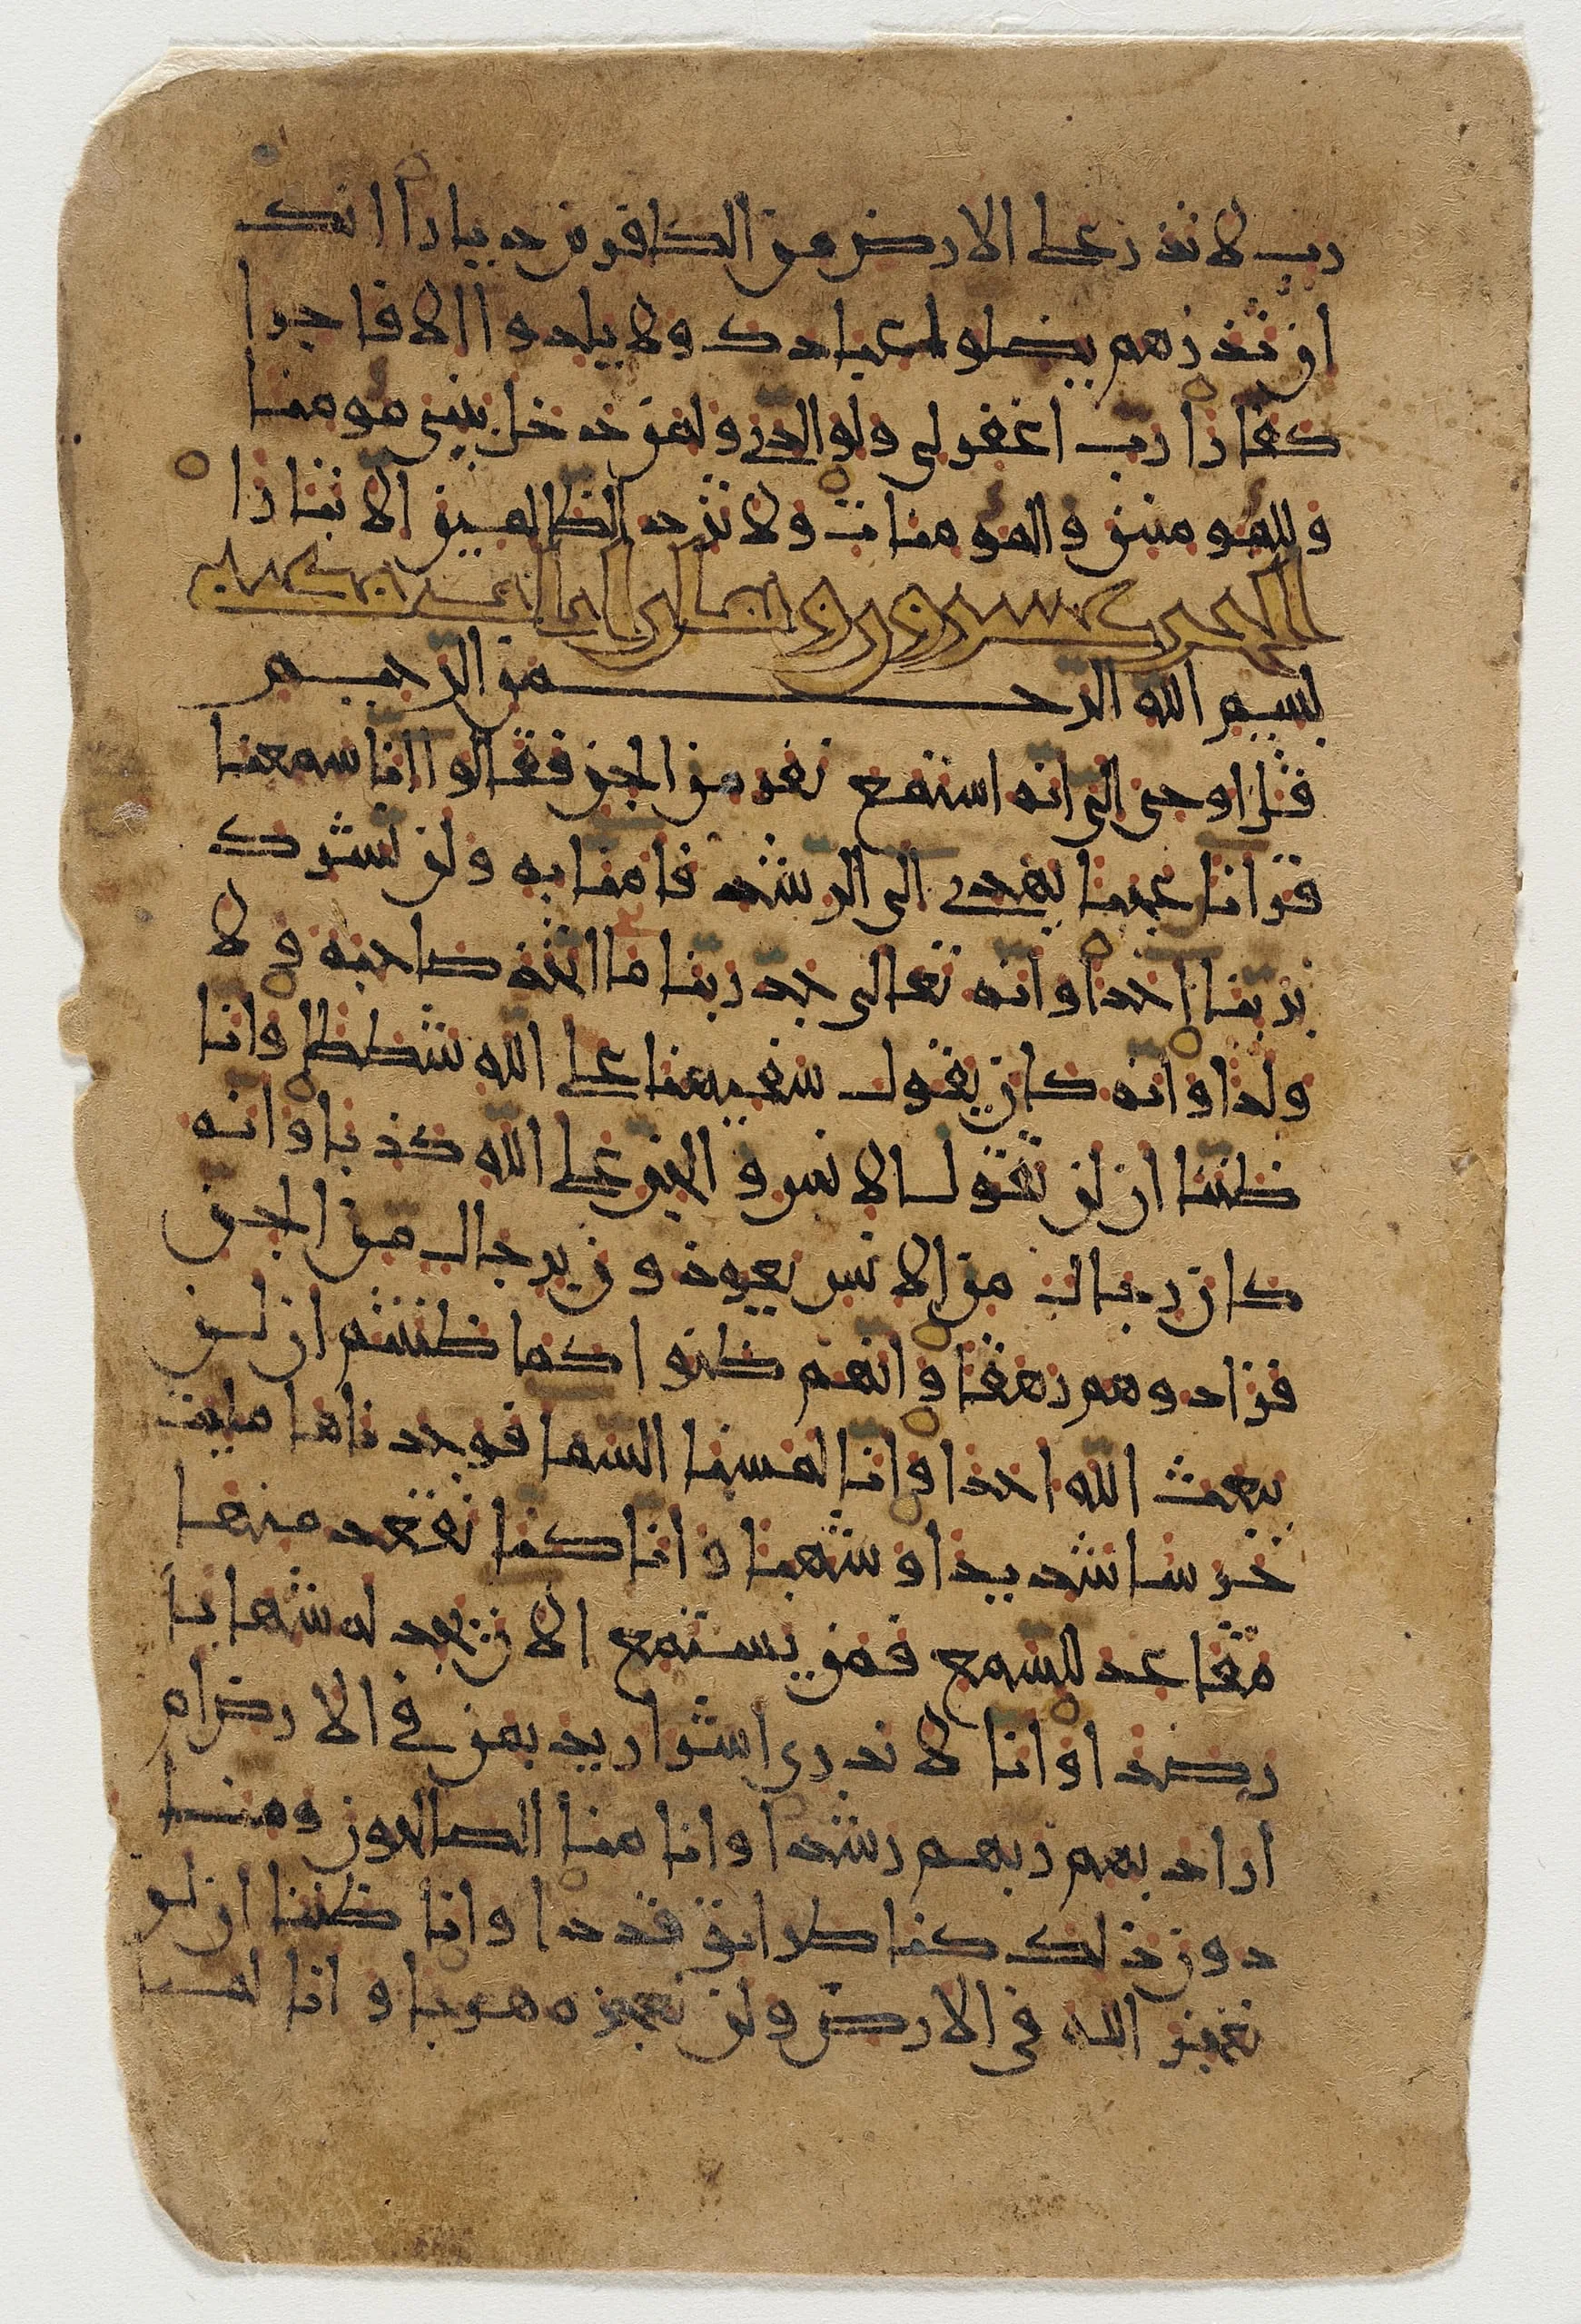 رب لا تذر على الارض من الكافرين ديارا انك
ان تذرهم يضلوا عبادك ولا يلدوا الا فاجرا
كفارا رب اغفر لى ولوالدى ولمن دخل بيتى مومنا
وللمومنين والمومنات ولا تزد الظالمين الا تبارا
الجن عشرون وثمان ايات
بسم الله الرحمن الرحيم
قل اوحى الى انه استمع نفر من الجن فقالوا انا سمعنا
قرانا عجبا يهدى الى الرشد فامنا به ولن نشرك
بربنا احدا وانه تعالى جد ربنا ما اتخذ صاحبة ولا
ولدا وانه كان يقول سفيهنا على الله شططا وانا
ظننا ان لن تقول الانس والجن على الله كذبا وانه
كان رجال من الانس يعوذون برجال من الجن
فزادوهم رهقا وانهم ظنوا كما ظننتم ان لن
يبعث الله احدا وانا لمسنا السما فوجدناها مليت
حرسا شديدا وشهبا وانا كنا نقعد منها
مقاعد للسمع فمن يستمع الان يجد له شهابا
رصدا وانا لا ندرى اشر اريد بمن فى الارض ام
اراد بهم ربهم رشدا وانا منا الصالحون ومنا
دون ذلك كنا طرائق قددا وانا ظننا ان لن
نعجز الله فى الارض ولن نعجزه هربا وانا لما